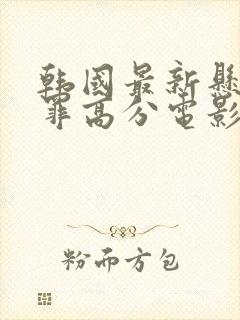 韩国最新悬
罪高分电影
粉而方包